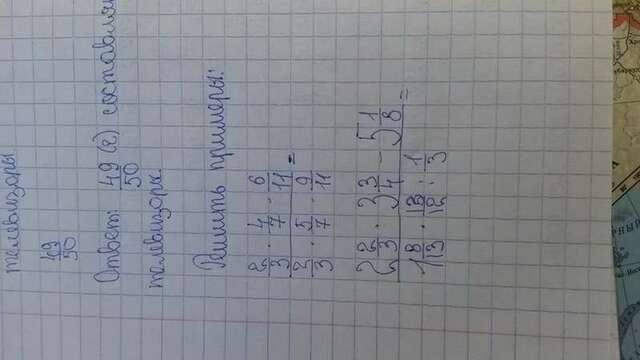 телевизоры
49/50
Ответ: 49/50 (г) составля
телевизоры.
Решить примеры:
2/3 · 4/7 · 6/11
2/3 · 5/7 · 9/11 =
2 2/3 · 3 3/4 - 5 1/8
1 8/13 · 13/12 : 1/3 =